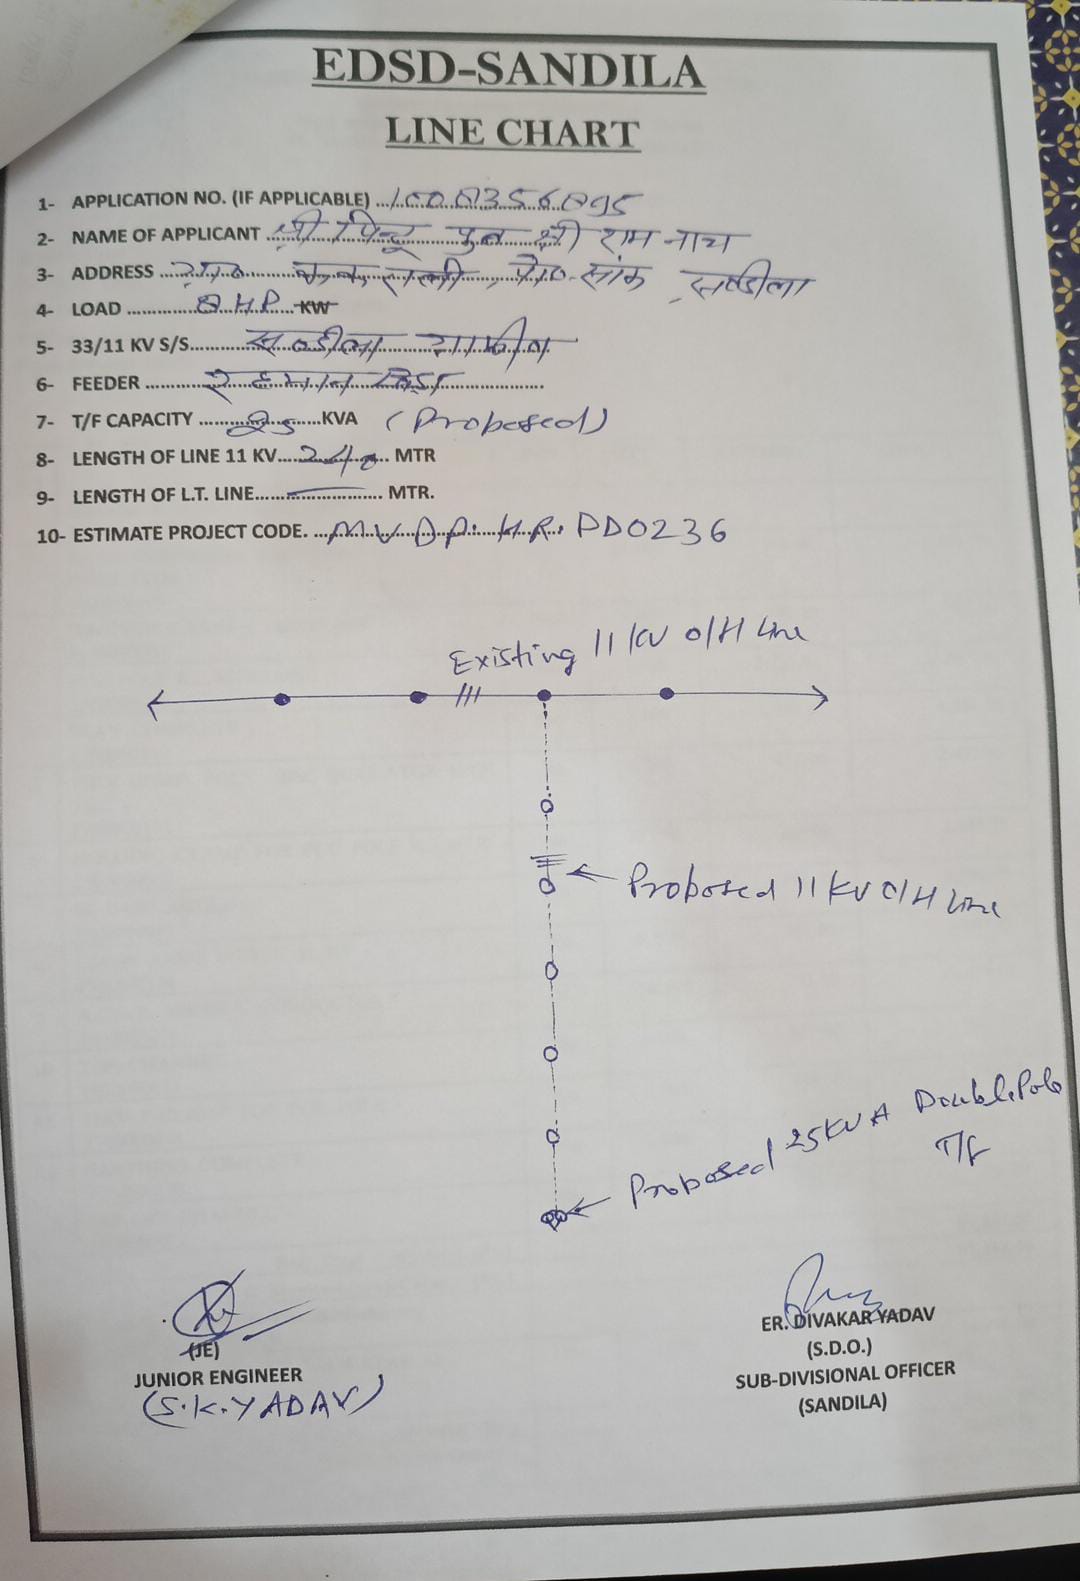 EDSD-SANDILA
LINE CHART
1- APPLICATION NO. (IF APPLICABLE) ...1000356095
2- NAME OF APPLICANT श्री पिन्टू पुत्र श्री राम नाथ
3- ADDRESS सण्डीला
4- LOAD H.P. KW
5- 33/11 KV S/S सण्डीला ग्रामीण
6- FEEDER
7- T/F CAPACITY 25 KVA (Proposed)
8- LENGTH OF LINE 11 KV 240 MTR
9- LENGTH OF L.T. LINE — MTR.
10- ESTIMATE PROJECT CODE. PD0236
Existing 11 KV O/H Line
Proposed 11 KV O/H Line
Proposed 25KVA Double Pole
T/f
(JE)
JUNIOR ENGINEER
(S.K.YADAV)
ER. DIVAKAR YADAV
(S.D.O.)
SUB-DIVISIONAL OFFICER
(SANDILA)